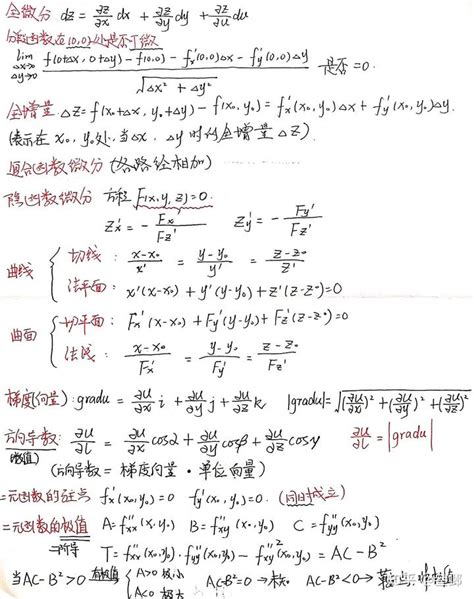 全微分 dz = ∂z/∂x dx + ∂z/∂y dy + ∂z/∂u du
函数在(0,0)处是否可微
lim Δx→0 Δy→0 [f(0+Δx, 0+Δy) - f(0,0) - fx'(0,0)Δx - fy'(0,0)Δy] / √(Δx² + Δy²) 是否=0.
全增量 ΔZ = f(x₀+Δx, y₀+Δy) - f(x₀, y₀) = fx'(x₀,y₀)Δx + fy'(x₀,y₀)Δy.
(表示在 x₀, y₀处, 当Δx, Δy时的全增量ΔZ).
复合函数微分 (各路径相加)
隐函数微分 方程 F(x,y,z)=0.
Zx' = - Fx'/Fz' Zy' = - Fy'/Fz'
曲线 { 切线: (x-x₀)/x' = (y-y₀)/y' = (z-z₀)/z'
法平面: x'(x-x₀) + y'(y-y₀) + z'(z-z₀)=0
曲面 { 切平面: Fx'(x-x₀) + Fy'(y-y₀) + Fz'(z-z₀)=0
法线: (x-x₀)/Fx' = (y-y₀)/Fy' = (z-z₀)/Fz'
梯度(向量): gradu = ∂u/∂x i + ∂u/∂y j + ∂u/∂z k, |gradu| = √((∂u/∂x)² + (∂u/∂y)² + (∂u/∂z)²)
方向导数: ∂u/∂l = ∂u/∂x cosα + ∂u/∂y cosβ + ∂u/∂z cosγ ∂u/∂l = |gradu|
(数值) (方向导数 = 梯度向量 · 单位向量)
二元函数的驻点 fx'(x₀,y₀)=0 fy'(x₀,y₀)=0. (同时成立)
二元函数的极值 A=fxx''(x₀,y₀) B=fxy''(x₀,y₀) C=fyy''(x₀,y₀)
二阶导 T=fxx''(x₀,y₀)·fyy''(x₀,y₀) - fxy''²(x₀,y₀) = AC-B²
当AC-B²>0 有极值 { A>0 极小 AC-B²=0 → AC-B²<0 →
A<0 极大